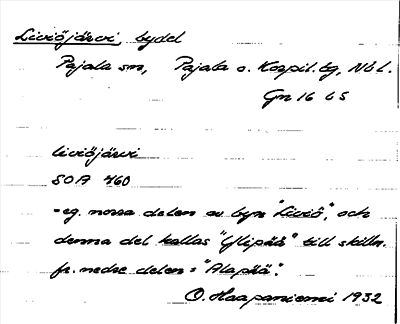 Liviöjärvi, bydel
Pajala sn, Pajala o. Korpil. tg, Nbl.
Gn 16 65
liviöjärvi
SOA 460
= eg. norra delen av byn "Liviö", och
denna del kallas "Ylipää" till skilln.
fr. nedre delen = "Alapää".
O. Haapaniemi 1932